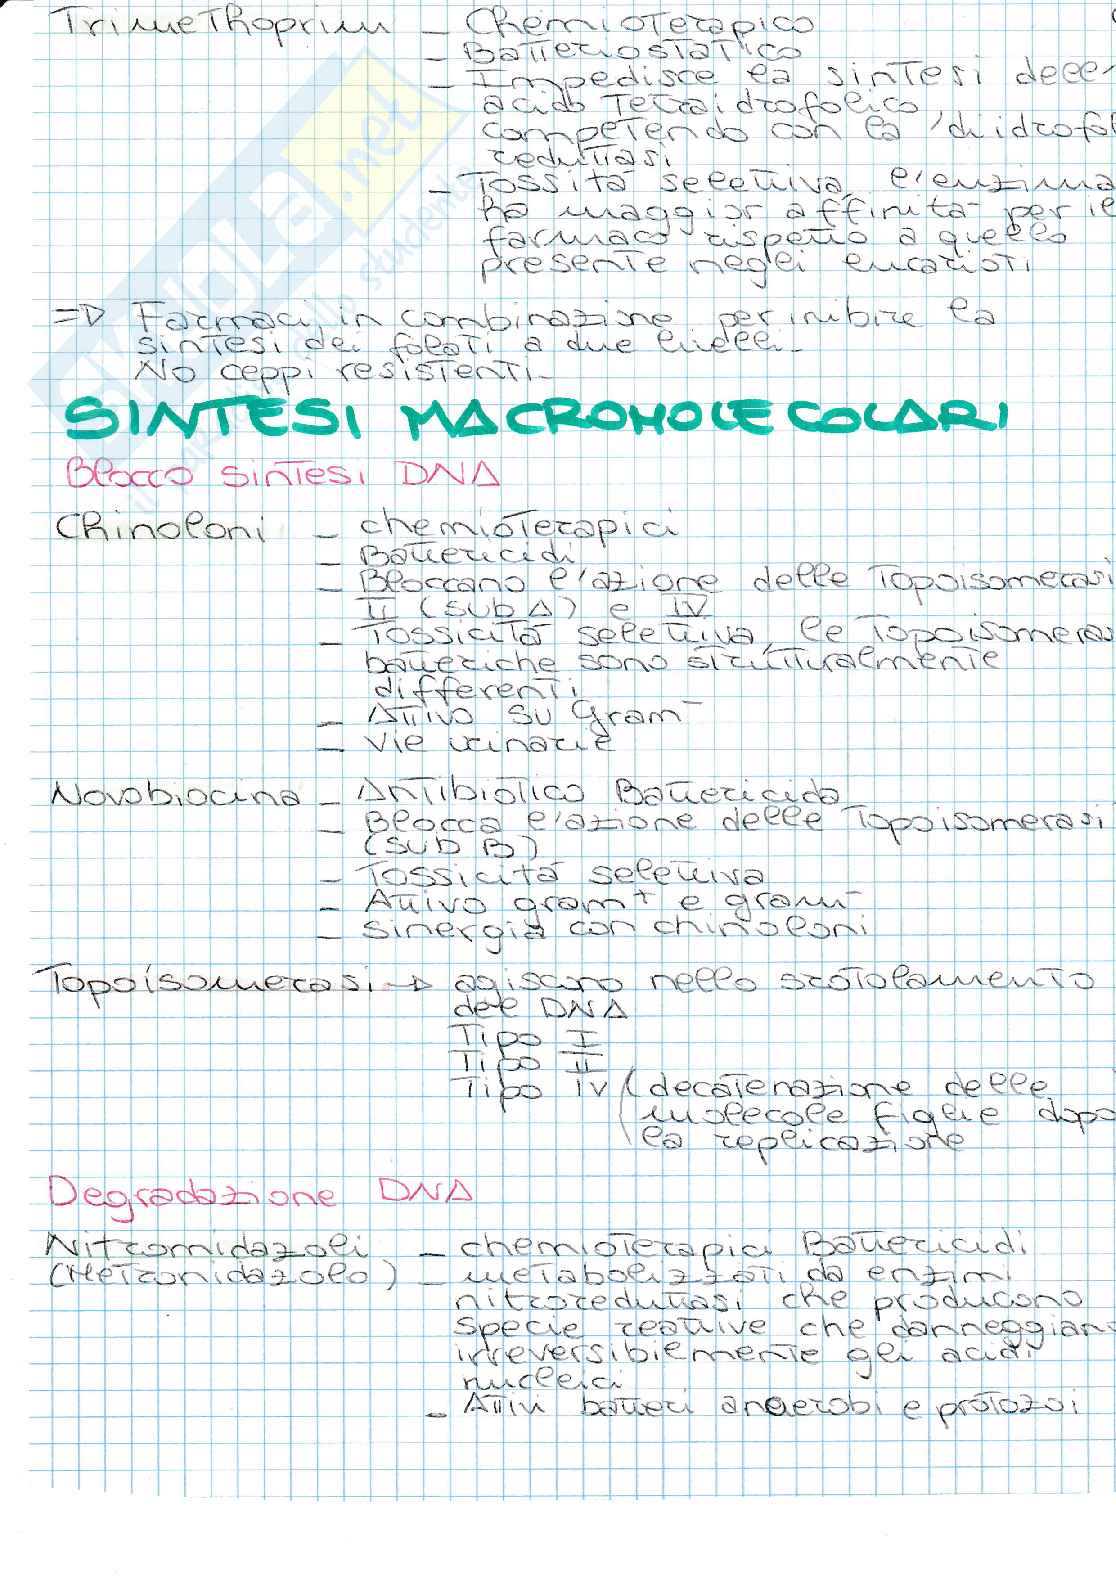 Trimethoprim - Chemioterapico
- Batteriostatico
- Impedisce la sintesi dell'
acido Tetraidrofolico,
competendo con la 'diidrofol
reduttasi
- Tossità selettiva, l'enzima
ha maggior affinità per il
farmaco rispetto a quello
presente negli eucarioti
=> Farmaci in combinazione per inibire la
sintesi dei folati a due livelli.
No ceppi resistenti.
SINTESI MACROMOLECOLARI
Blocco sintesi DNA
Chinoloni - chemioterapici
- Battericidi
- Bloccano l'azione delle Topoisomerasi
II (sub A) e IV
- Tossicità selettiva, le Topoisomeras
batteriche sono strutturalmente
differenti
- Attivo su Gram-
- Vie urinarie
Novobiocina - Antibiotico Battericida
- Blocca l'azione delle Topoisomerasi
(sub B)
- Tossicità selettiva
- Attivo gram+ e gram-
- Sinergia con chinoloni
Topoisomerasi -> agiscono nello srotolamento
del DNA
Tipo I
Tipo II
Tipo IV (decatenazione delle
molecole figlie dopo
la replicazione
Degradazione DNA
Nitromidazoli - chemioterapici Battericidi
(Metronidazolo) - metabolizzati da enzimi
nitroreduttasi che producono
specie reattive che danneggiano
irreversibilmente gli acidi
nucleici
- Attivi batteri anaerobi e protozoi
skuola.net